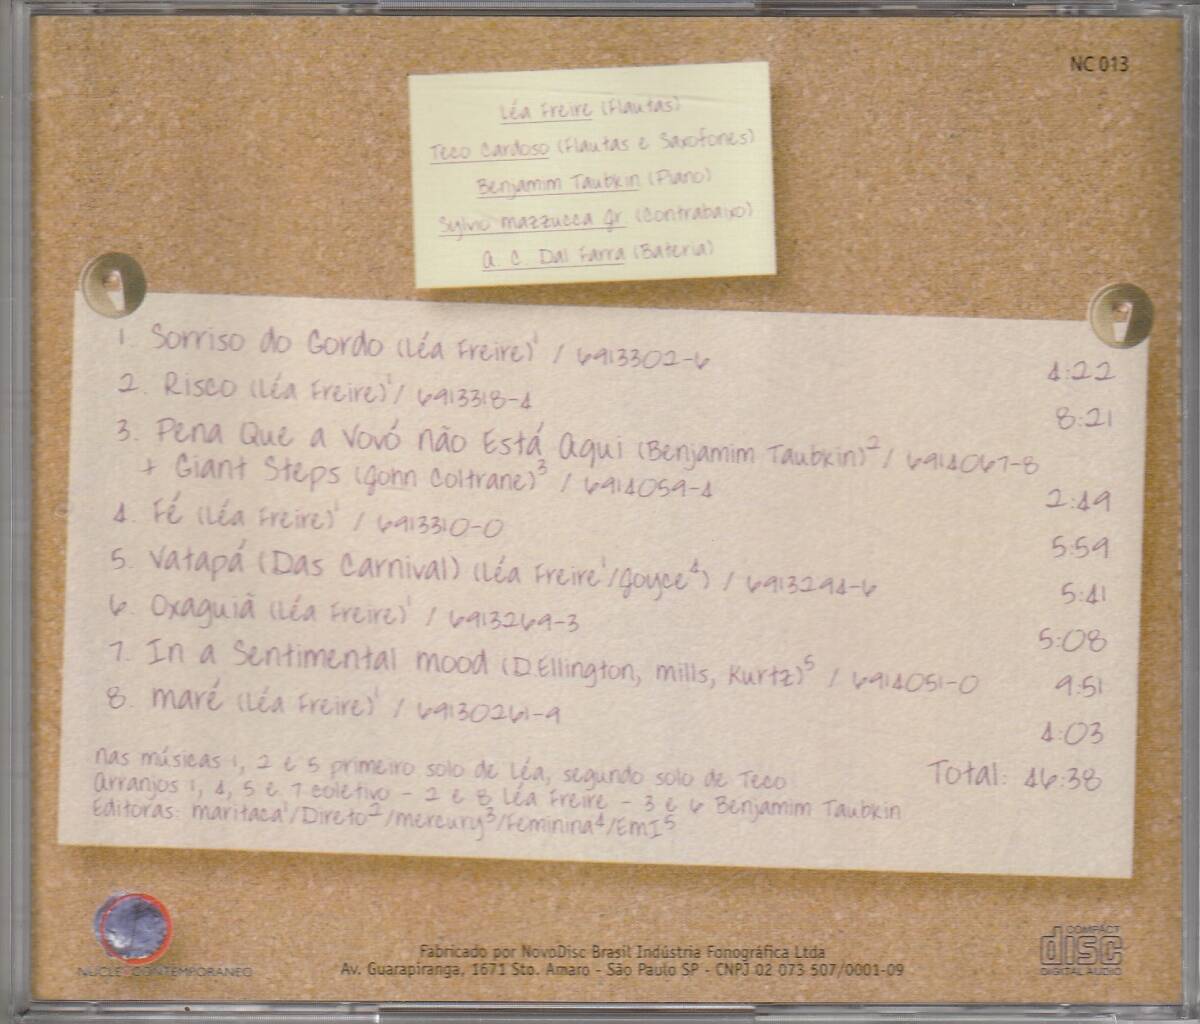 NC 013
Léa Freire (Flautas)
Teco Cardoso (Flautas e Saxofones)
Benjamim Taubkin (Piano)
Sylvio Mazzucca Jr (Contrabaixo)
A. C. Dal Farra (Bateria)
1. Sorriso do Gordo (Léa Freire)¹ / 6913302-6 4:22
2. Risco (Léa Freire)¹/ 6913318-4 8:21
3. Pena Que a Vovó não Está Aqui (Benjamim Taubkin)²/ 6914067-8
+ Giant Steps (John Coltrane)³ / 6914059-4 2:49
4. Fé (Léa Freire)¹ / 6913310-0 5:59
5. Vatapá (Das Carnival) (Léa Freire¹/Joyce⁴) / 6913294-6 5:41
6. Oxaguiã (Léa Freire)¹ / 6913269-3 5:08
7. In a Sentimental mood (D.Ellington, mills, Kurtz)⁵ / 6914051-0 9:51
8. maré (Léa Freire)¹ / 69130261-9 4:03
nas músicas 1, 2 e 5 primeiro solo de Léa, segundo solo de Teco
Total: 46:38
Arranjos 1, 4, 5 e 7 coletivo - 2 e 8 Léa Freire - 3 e 6 Benjamim Taubkin
Editoras: maritaca¹/Direto²/mercury³/Feminina⁴/EmI⁵
NÚCLEO CONTEMPORÂNEO
Fabricado por NovoDisc Brasil Indústria Fonográfica Ltda
Av. Guarapiranga, 1671 Sto. Amaro - São Paulo SP - CNPJ 02 073 507/0001-09
COMPACT
disc
DIGITAL AUDIO